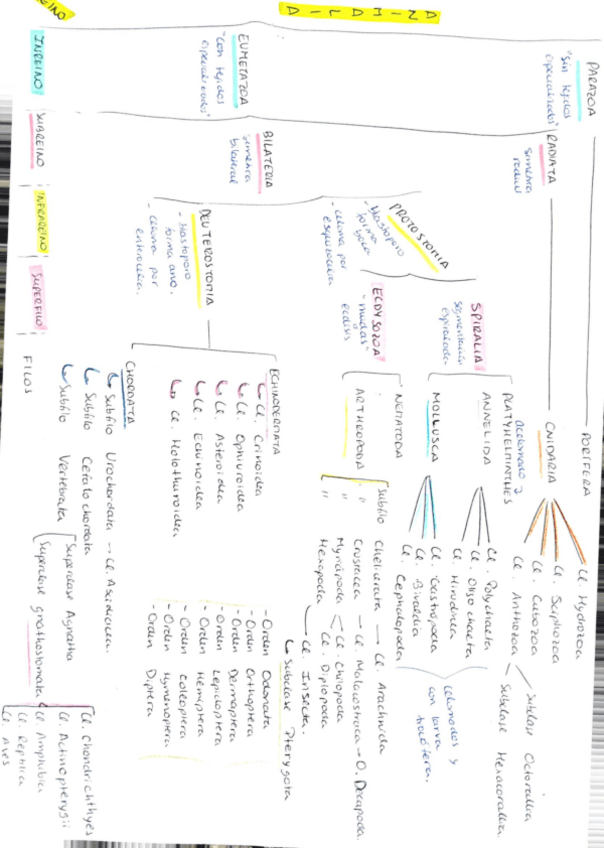 ANIMALIA
PARAZOA
"sin tejidos
especializados"
EUMETAZOA
"con tejidos
especializados"
INREINO
RADIATA
simetría
radial
BILATERIA
simetría
bilateral
SUBREINO
PROTOSTOMIA
- blastoporo
forma boca
- celoma por
esquizocelia
DEUTEROSTOMIA
- blastoporo
forma ano.
- celoma por
enterocelia.
INFRAREINO
SPIRALIA
segmentación
espiralada
ECDYSOZOA
"mudas"
ecdisis
SUPERFILO
PORIFERA
CNIDARIA
Cl. Hydrozoa
Cl. Sciphozoa
Cl. Cubozoa
Cl. Anthozoa
Subclase Octorallia
Subclase Hexacorallia
acelomado
PLATYHELMINTHES
ANNELIDA
Cl. Polychaeta
Cl. Oligochaeta
Cl. Hirudinea
MOLLUSCA
Cl. Gastropoda
Cl. Bivalvia
Cl. Cephalopoda
celomados y
con larva
trocófera.
NEMATODA
ARTHROPODA
Subfilo Chelicerata → Cl. Arachnida
" Crustacea → Cl. Malacostraca → O. Decapoda.
" Myriapoda Cl. Chilopoda
Cl. Diplopoda
" Hexapoda Cl. Insecta.
Subclase Pterygota
- Orden Odonata
- Orden Orthoptera
- Orden Dermaptera
- Orden Lepidoptera
- Orden Hemiptera
- Orden Coleoptera
- Orden Hymenoptera
- Orden Diptera
ECHINODERMATA
Cl. Crinoidea
Cl. Ophiuroidea
Cl. Asteroidea
Cl. Echinoidea
Cl. Holothuroidea
CHORDATA
Subfilo Urochordata → Cl. Ascidiacea.
Subfilo Cefalochordata
Subfilo Vertebrata
Superclase Agnatha
Superclase gnathostomata
Cl. Chondrichthyes
Cl. Actinopterygii
Cl. Amphibia
Cl. Reptilia
Cl. Aves
FILOS